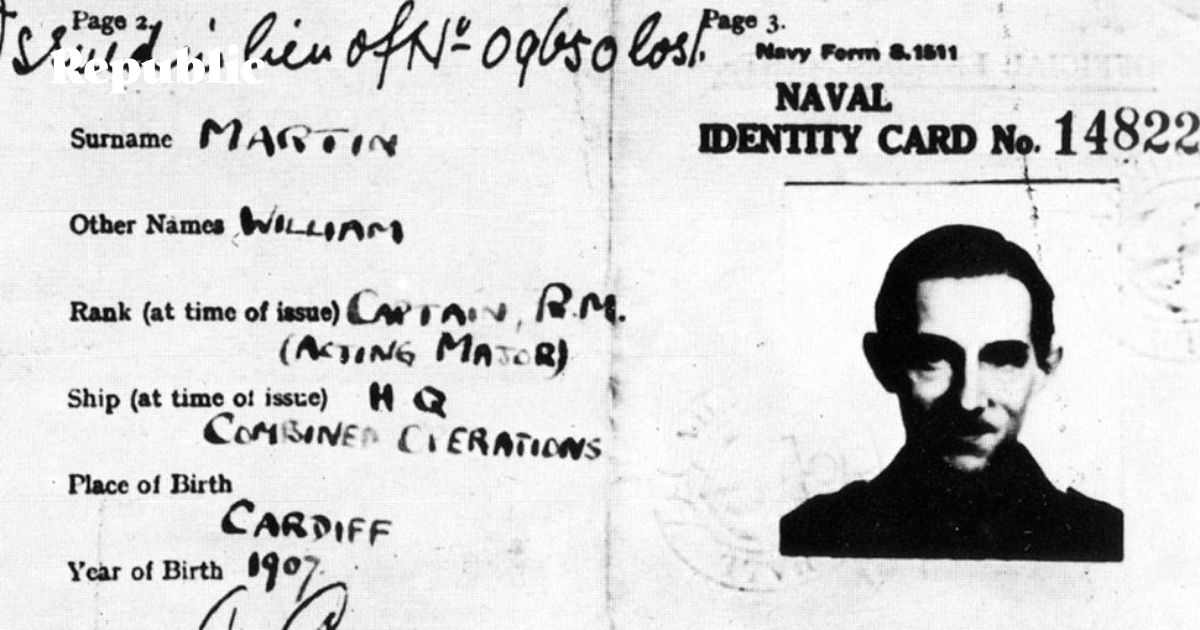 Page 2.
Issued in lieu of Nº 09650 lost.
Republic
Surname MARTIN
Other Names WILLIAM
Rank (at time of issue) CAPTAIN, R.M.
(ACTING MAJOR)
Ship (at time of issue) H Q
COMBINED OPERATIONS
Place of Birth
CARDIFF
Year of Birth 1907
Page 3.
Navy Form S.1511
NAVAL
IDENTITY CARD No. 148228